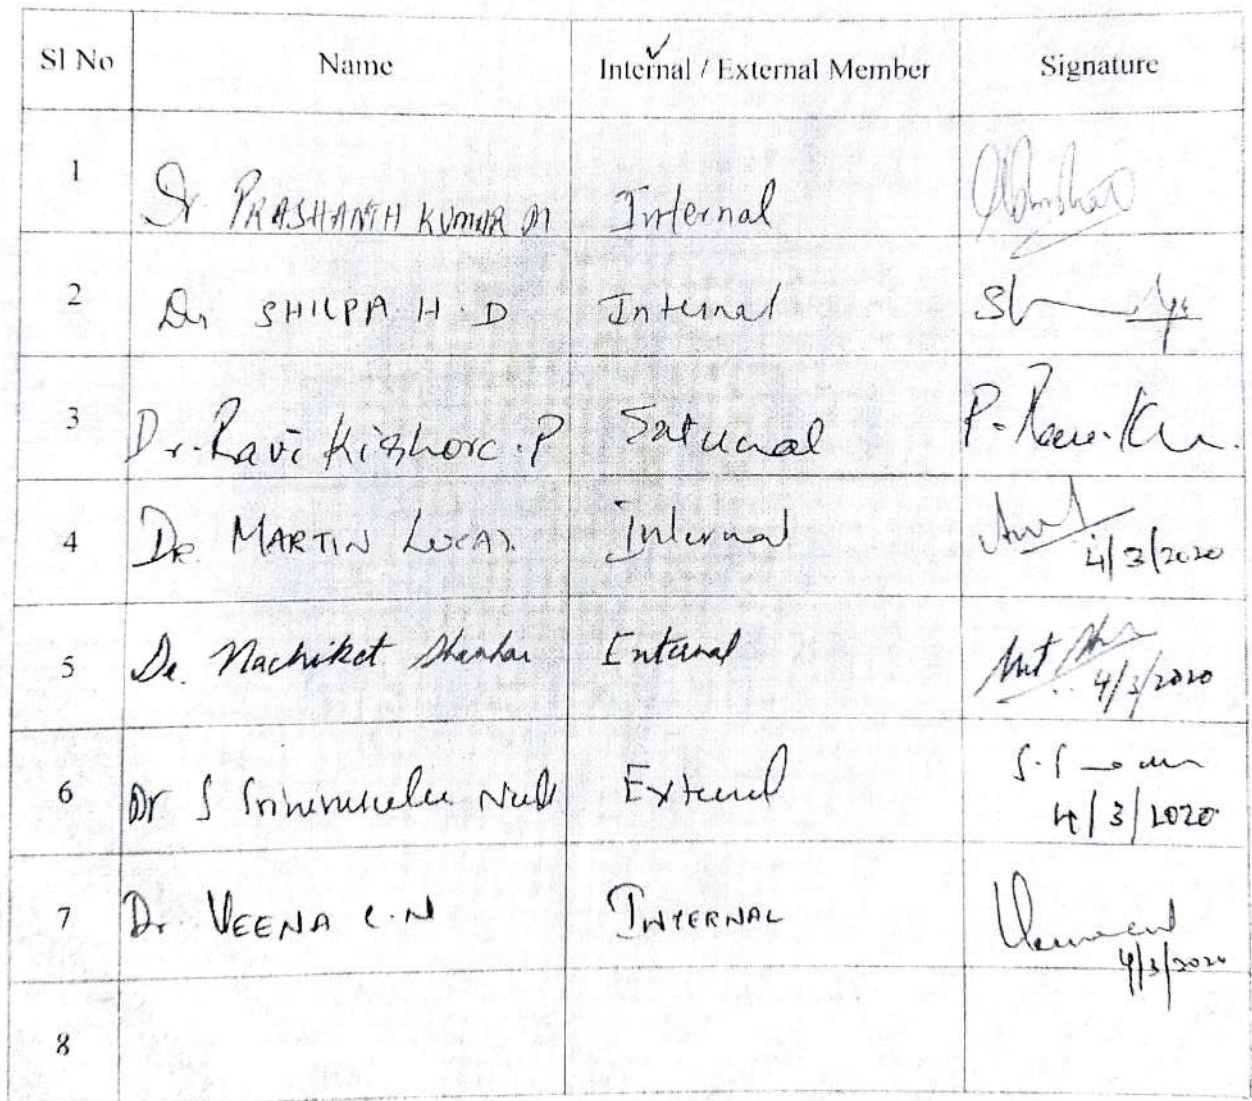 Sl No Name Internal / External Member Signature
1 Dr PRASHANTH KUMAR M Internal
2 Dr SHILPA H.D Internal
3 Dr. Ravi Kishore. P External P. Ravi. K
4 Dr. MARTIN LUCAS. Internal
4/3/2020
5 De. Nachiket Shankar External
4/3/2020
6 Dr S External
4/3/2020
7 Dr. VEENA C.N INTERNAL
4/3/2020
8